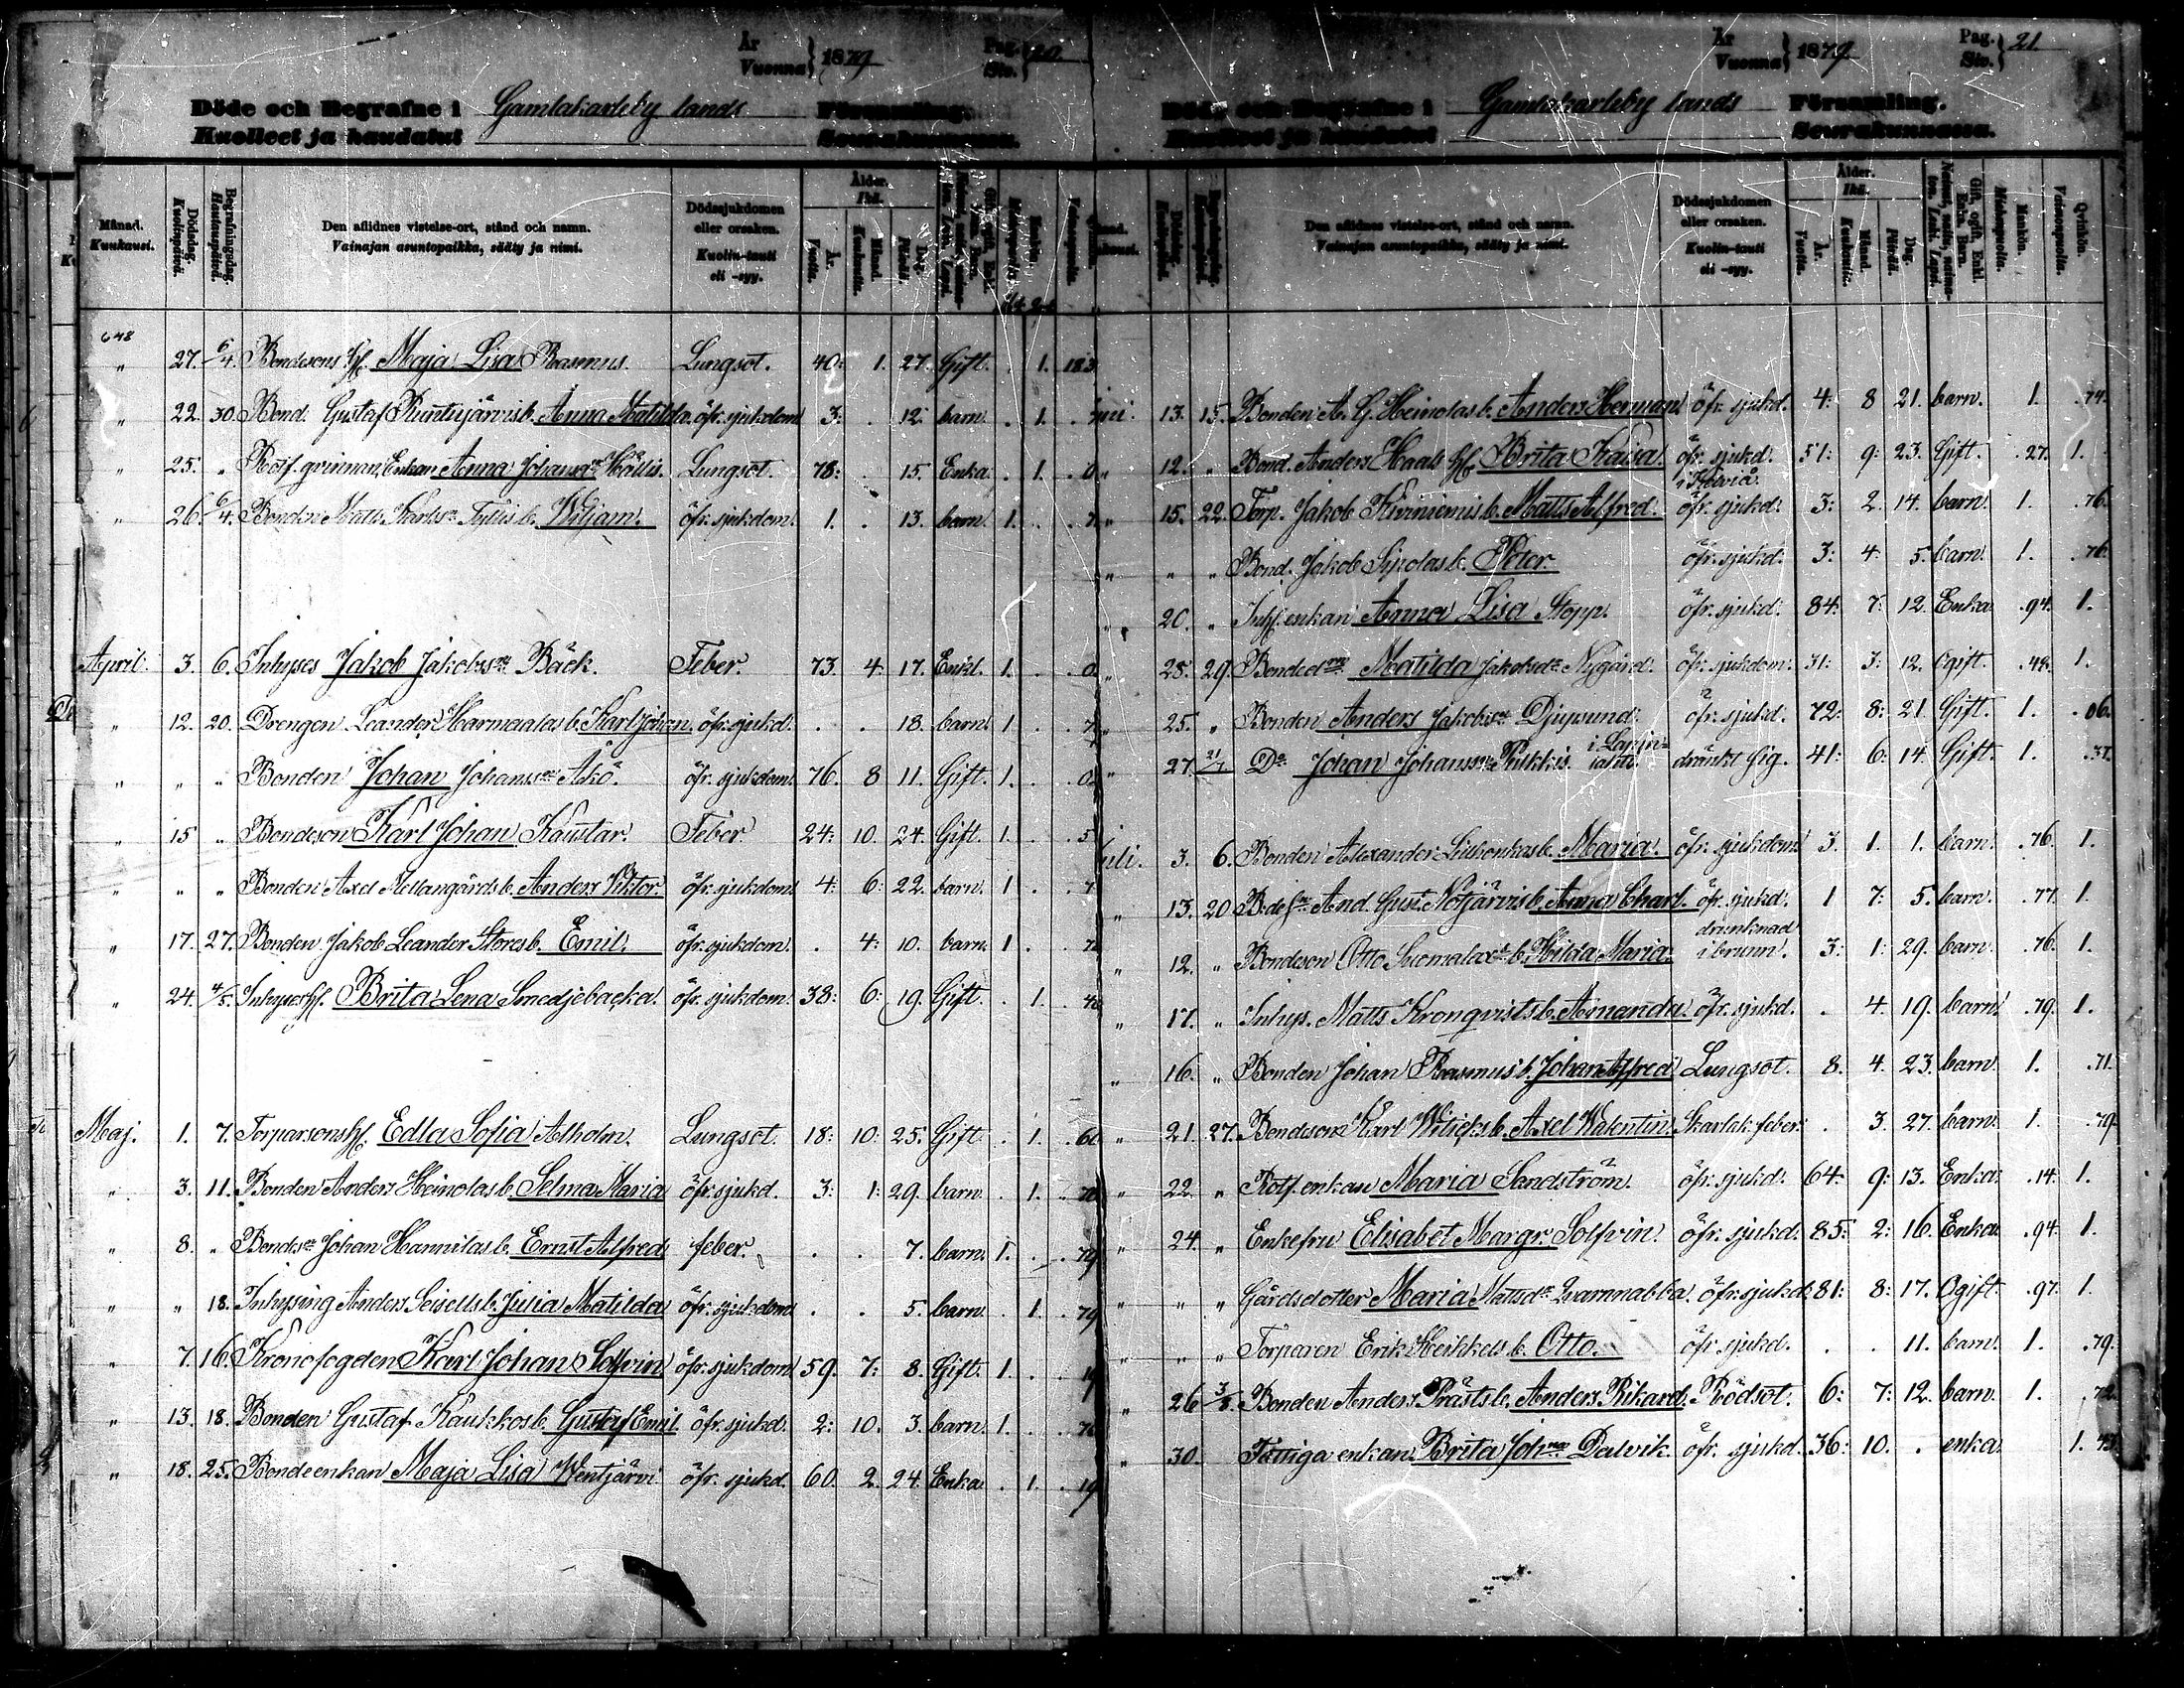 År Vuonna } 1879 Pag. Siv. } 20.
Döde och Begrafne i Gamlakarleby lands Församling.
Kuolleet ja haudatut Seurakunnassa.
Månad. Kuukausi. Dödsdag. Kuolinpäivä. Begrafningsdag. Hautauspäivä. Den aflidnes vistelse-ort, stånd och namn. Vainajan asuntopaikka, sääty ja nimi. Dödssjukdomen eller orsaken. Kuolin-tauti eli -syy. Ålder. Ikä. År. Vuotta. Månad. Kuukautta. Dag. Päivää.
648
" 27. 6/4. Bondesons hf. Maja Lisa Rasmus. Lungsot. 40: 1. 27. Gift. . 1.
" 22. 30. Bond. Gustaf Runtujärvis b. Anna Matilda. öfr. sjukdom 3: . 12. barn. . 1.
" 25. " Rotf. qvinnan, Enkan Anna Johansdr Hällis. Lungsot. 78: . 15. Enka. . 1.
" 26. 6/4. Bonden Matts Karlss. Tyllis b. Wiljam. öfr. sjukdom. 1. . 13. barn. 1.
April. 3. 6. Inhyses Jakob Jakobsson Bäck. Feber. 73. 4. 17. Enkl. 1.
" 12. 20. Drengen Leander Harmaalas b. Karl Johan. öfr. sjukd. . . 18. barn. 1.
" " " Bonden Johan Johansson Åkö. öfr. sjukdom. 76. 8 11. Gift. 1.
" 15 " Bondeson Karl Johan Kaustar. Feber 24: 10. 24. Gift. 1.
" " " Bonden Axel Mellangårds b. Anders Viktor. öfr. sjukdom. 4: 6: 22. barn. 1
" 17. 27. Bonden Jakob Leander Stores b. Emil. öfr. sjukdom. . 4: 10. barn. 1
" 24. 4/5. Inhyses hf. Brita Lena Smedjebacka. öfr. sjukdom. 38: 6: 19. Gift. . 1.
Maj. 1. 7. Torparsons hf. Edla Sofia Aholm. Lungsot. 18: 10: 25. Gift. . 1. . 60
" 3. 11. Bonden Anders Heinolas b. Selma Maria öfr. sjukd. 3: 1: 29. barn. . 1.
" 8. " Bondsn Johan Hannilas b. Ernst Alfred feber. . . 7. barn. 1. . 79
" " 18. Inhysing Anders Seisells b. Julia Matilda öfr. sjukdom . . 5. barn. . 1. . 79
" 7. 16. Kronofogden Karl Johan Solfvin öfr. sjukdom 59. 7: 8. Gift. 1. . 19
" 13. 18. Bonden Gustaf Kaukkos b. Gustaf Emil. öfr. sjukd. 2: 10. 3. barn. 1.
" 18. 25. Bondeenkan Maja Lisa Wentjärvi öfr. sjukd. 60. 2. 24. Enka. . 1. . 19
År Vuonna } 1879. Pag. Siv. } 21.
Döde och Begrafne i Gamlakarleby lands Församling.
Kuolleet ja haudatut Seurakunnassa.
Den aflidnes vistelse-ort, stånd och namn. Vainajan asuntopaikka, sääty ja nimi. Dödssjukdomen eller orsaken. Kuolin-tauti eli -syy. Ålder. Ikä. År. Vuotta. Månad. Kuukautta. Dag. Päivää. Gift, ogift, Enkl. Enka, Barn. Miehenpuolia. Mankön. Vaimopuolia. Qvinkön.
13. 15. Bonden A. G. Heinolas b. Anders Herman öfr. sjukd. 4: 8 21. barn. 1. . 74.
" 12. " Bond. Anders Haals hf. Brita Kaisa. öfr. sjukd. i Kelviå. 51: 9: 23. Gift. . 27. 1.
" 15. 22. Torp. Jakob Kiviniemis b. Matts Alfred. öfr. sjukd. 3: 2. 14. barn. 1. . 76.
" " " Bond. Jakob Sipolas b. Peter. öfr. sjukd. 3: 4: 5. barn. 1. . 76.
" 20. " Inhf. enkan Anna Lisa Stopp. öfr. sjukd. 84: 7: 12. Enka . 94. 1.
" 28. 29. Bondedr Matilda Jakobsdr Nygård. öfr. sjukdom. 31: 3: 12. Ogift. . 48. 1.
" 25. " Bonden Anders Jakobsson Djupsund. öfr. sjukd. 72: 8: 21 Gift. 1. . 06.
" 27. 21/7 Do Johan Johansson Pulkkis. i Lapinlahti. dränkt sig. 41: 6: 14. Gift. 1. . 37.
3. 6. Bonden Alexander Liihonkas b. Maria. öfr. sjukdom. 3. 1. 1. barn. . 76. 1.
" 13. 20 Bdesn And. Gust. Notjärvis b. Anna Charl. öfr. sjukd. 1 7: 5. barn. . 77. 1.
" 12. " Bondeson Otto Suomalax b. Hilda Maria. drunknad i brunn. 3: 1: 29. barn. . 76. 1.
" 17. " Inhys. Matts Kronqvists b. Amanda. öfr. sjukd. . 4. 19. barn. . 79. 1.
" 16. " Bonden Johan Rasmus b. Johan Alfred Lungsot. 8. 4. 23. barn. 1. . 71.
" 21. 27. Bondeson Karl Witicks b. Axel Walentin. Skarlak. feber. . 3. 27. barn. 1. . 79.
" 22. " Rotf. enkan Maria Sandström. öfr. sjukd. 64. 9: 13. Enka. . 14. 1.
" 24. " Enkefru Elisabet Margr. Solfvin. öfr. sjukd. 85: 2: 16. Enka. . 94. 1.
" " " Gårdsdotter Maria Mattsdr Qvarnnabba. öfr. sjukd. 81: 8: 17. Ogift. . 97. 1.
" " " Torparen Erik Heikkels b. Otto. öfr. sjukd. . . 11. barn. 1. . 79.
" 26 3/8. Bonden Anders Prästs b. Anders Rikard. Rödsot. 6: 7: 12. barn. 1. . 72.
" 30. Fattiga enkan Brita Johna Dalvik. öfr. sjukd. 36: 10. . enka 1. 43.